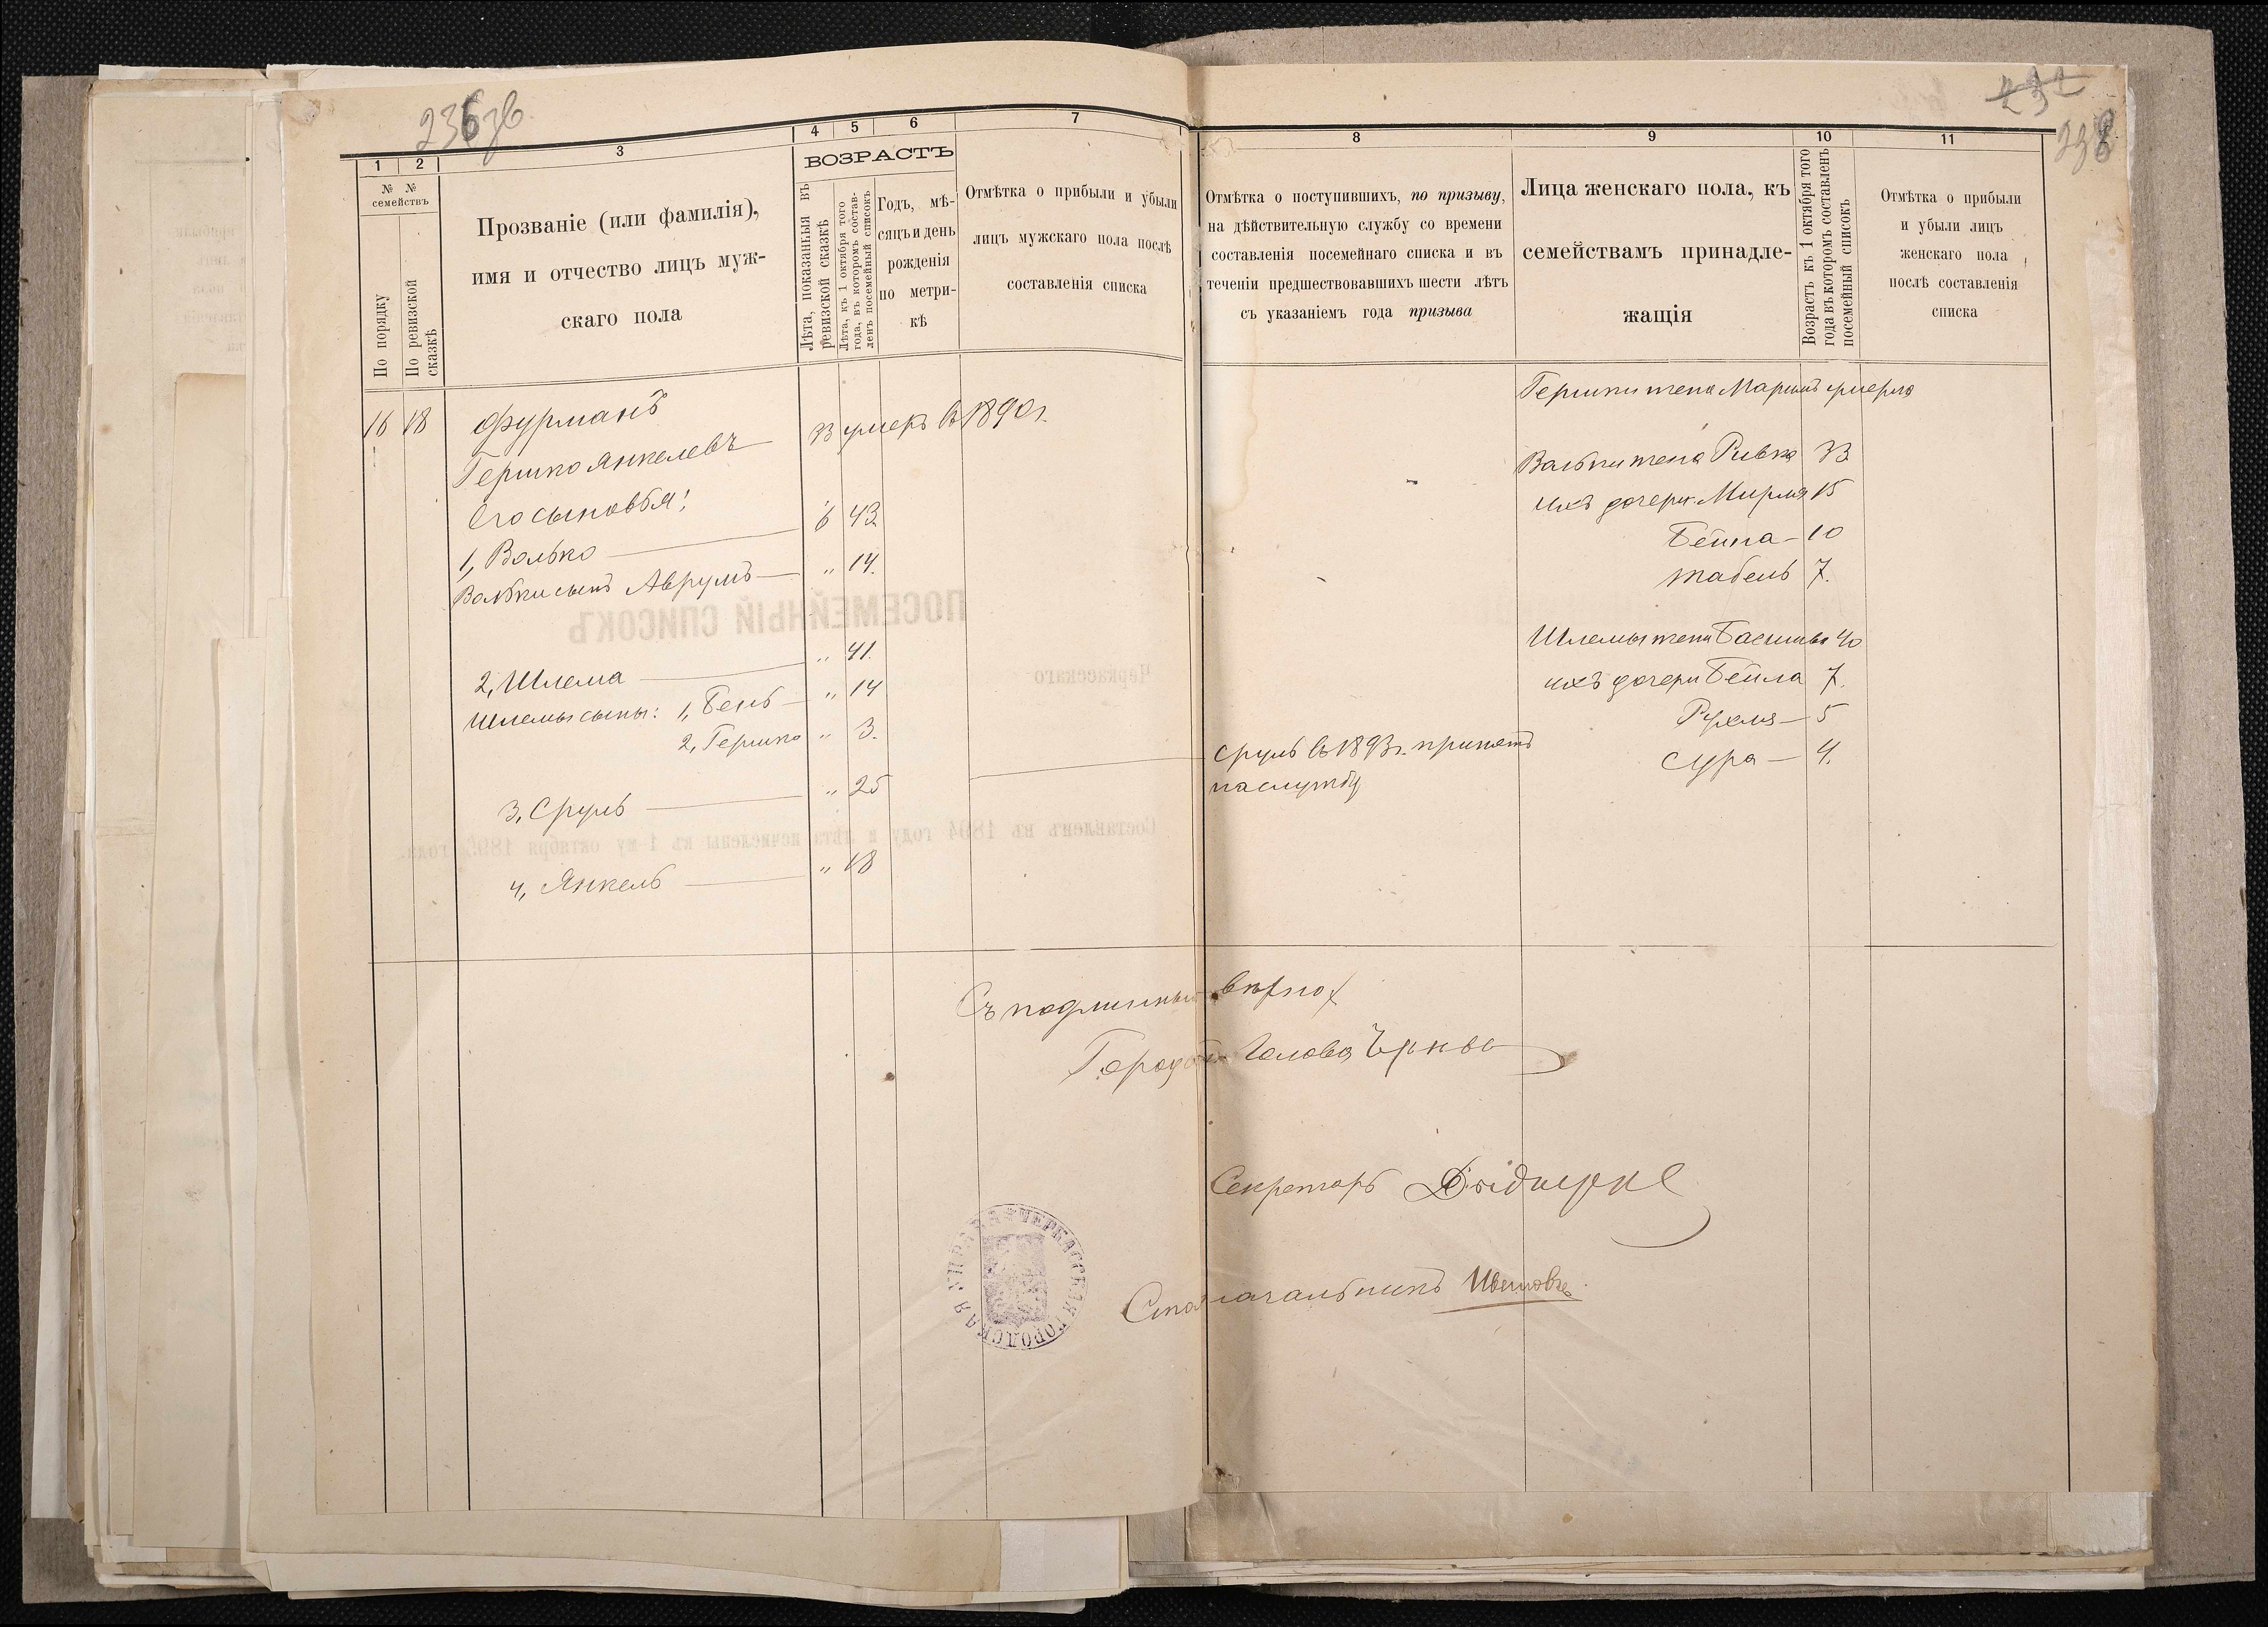 1 2 3 4 5 6 7
№ № семействъ
По порядку
По ревизской сказкѣ
Прозваніе (или фамилія),
имя и отчество лицъ муж-
скаго пола
ВОЗРАСТЪ
Лѣта, показанныя въ
ревизской сказкѣ
Лѣта, къ 1 октября того
года, въ которомъ состав-
ленъ посемейный списокъ
Годъ, мѣ-
сяцъ и день
рожденія
по метри-
кѣ
Отмѣтка о прибыли и убыли
лицъ мужскаго пола послѣ
составленія списка
16 18 Фурманъ
Гершко Янкелевъ 33 умеръ въ 1890 г.
Его сыновья:
1, Волько 6 43
Вольки сынъ Аврумъ „ 14.
2, Шлема „ 41.
Шлемы сыны: 1, Бень „ 14
2, Гершко „ 3.
3, Сруль „ 25
4, Янкель „ 18
ПОСЕМЕЙНЫЙ СПИСОКЪ
Черкасскаго
Составленъ въ 1894 году и лѣта исчислены къ 1-му октября 1895 года.
8 9 10 11
Отмѣтка о поступившихъ, по призыву,
на дѣйствительную службу со времени
составленія посемейнаго списка и въ
теченіи предшествовавшихъ шести лѣтъ
съ указаніемъ года призыва
Лица женскаго пола, къ
семействамъ принадле-
жащія
Возрастъ къ 1 октября того
года въ которомъ составленъ
посемейный списокъ
Отмѣтка о прибыли
и убыли лицъ
женскаго пола
послѣ составленія
списка
Гершки жена Марьямъ умерла
Вольки жена Ривка 33
ихъ дочери: Мирля 15
Бейла 10
Табель 7.
Шлемы жена Басшива 40
ихъ дочери Бейла 7.
Рухля 5
Сура 4.
Сруль въ 1893 г. принятъ
на службу
Съ подлиннымъ вѣрно:
Городской Голова
Секретарь
Столоначальникъ
ЧЕРКАССКАЯ ГОРОДСКАЯ УПРАВА